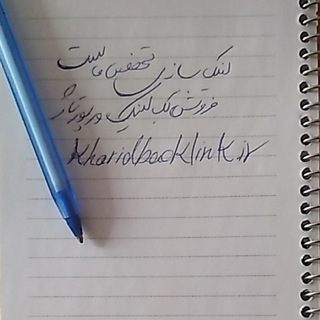 لینک سازی تخصص ماست
فروش بک لینک و رپورتاژ
kharidbacklink.ir